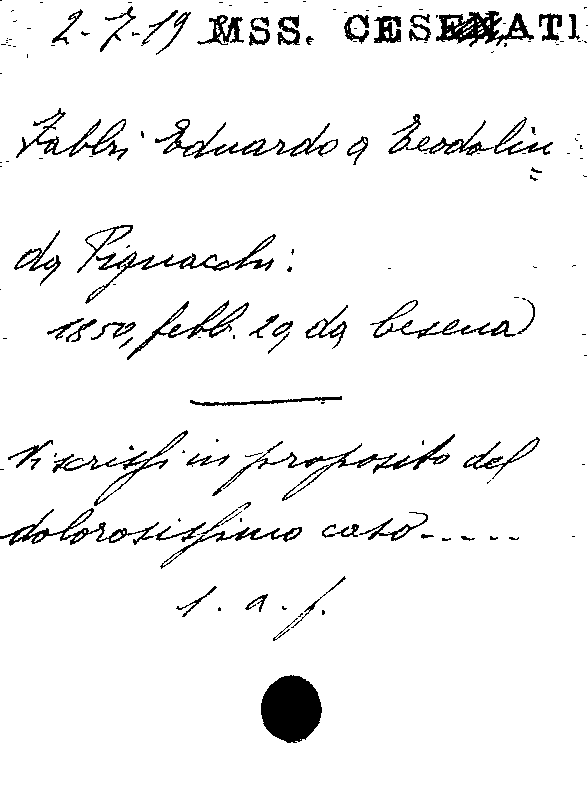 2-7-19 MSS. CESENATI
Fabbri Eduardo a Teodolin
=
da Pignacchi:
1850, febb. 29 da Cesena
Vi scrissi in proposito del
dolorosissimo caso-----
1. a. f.